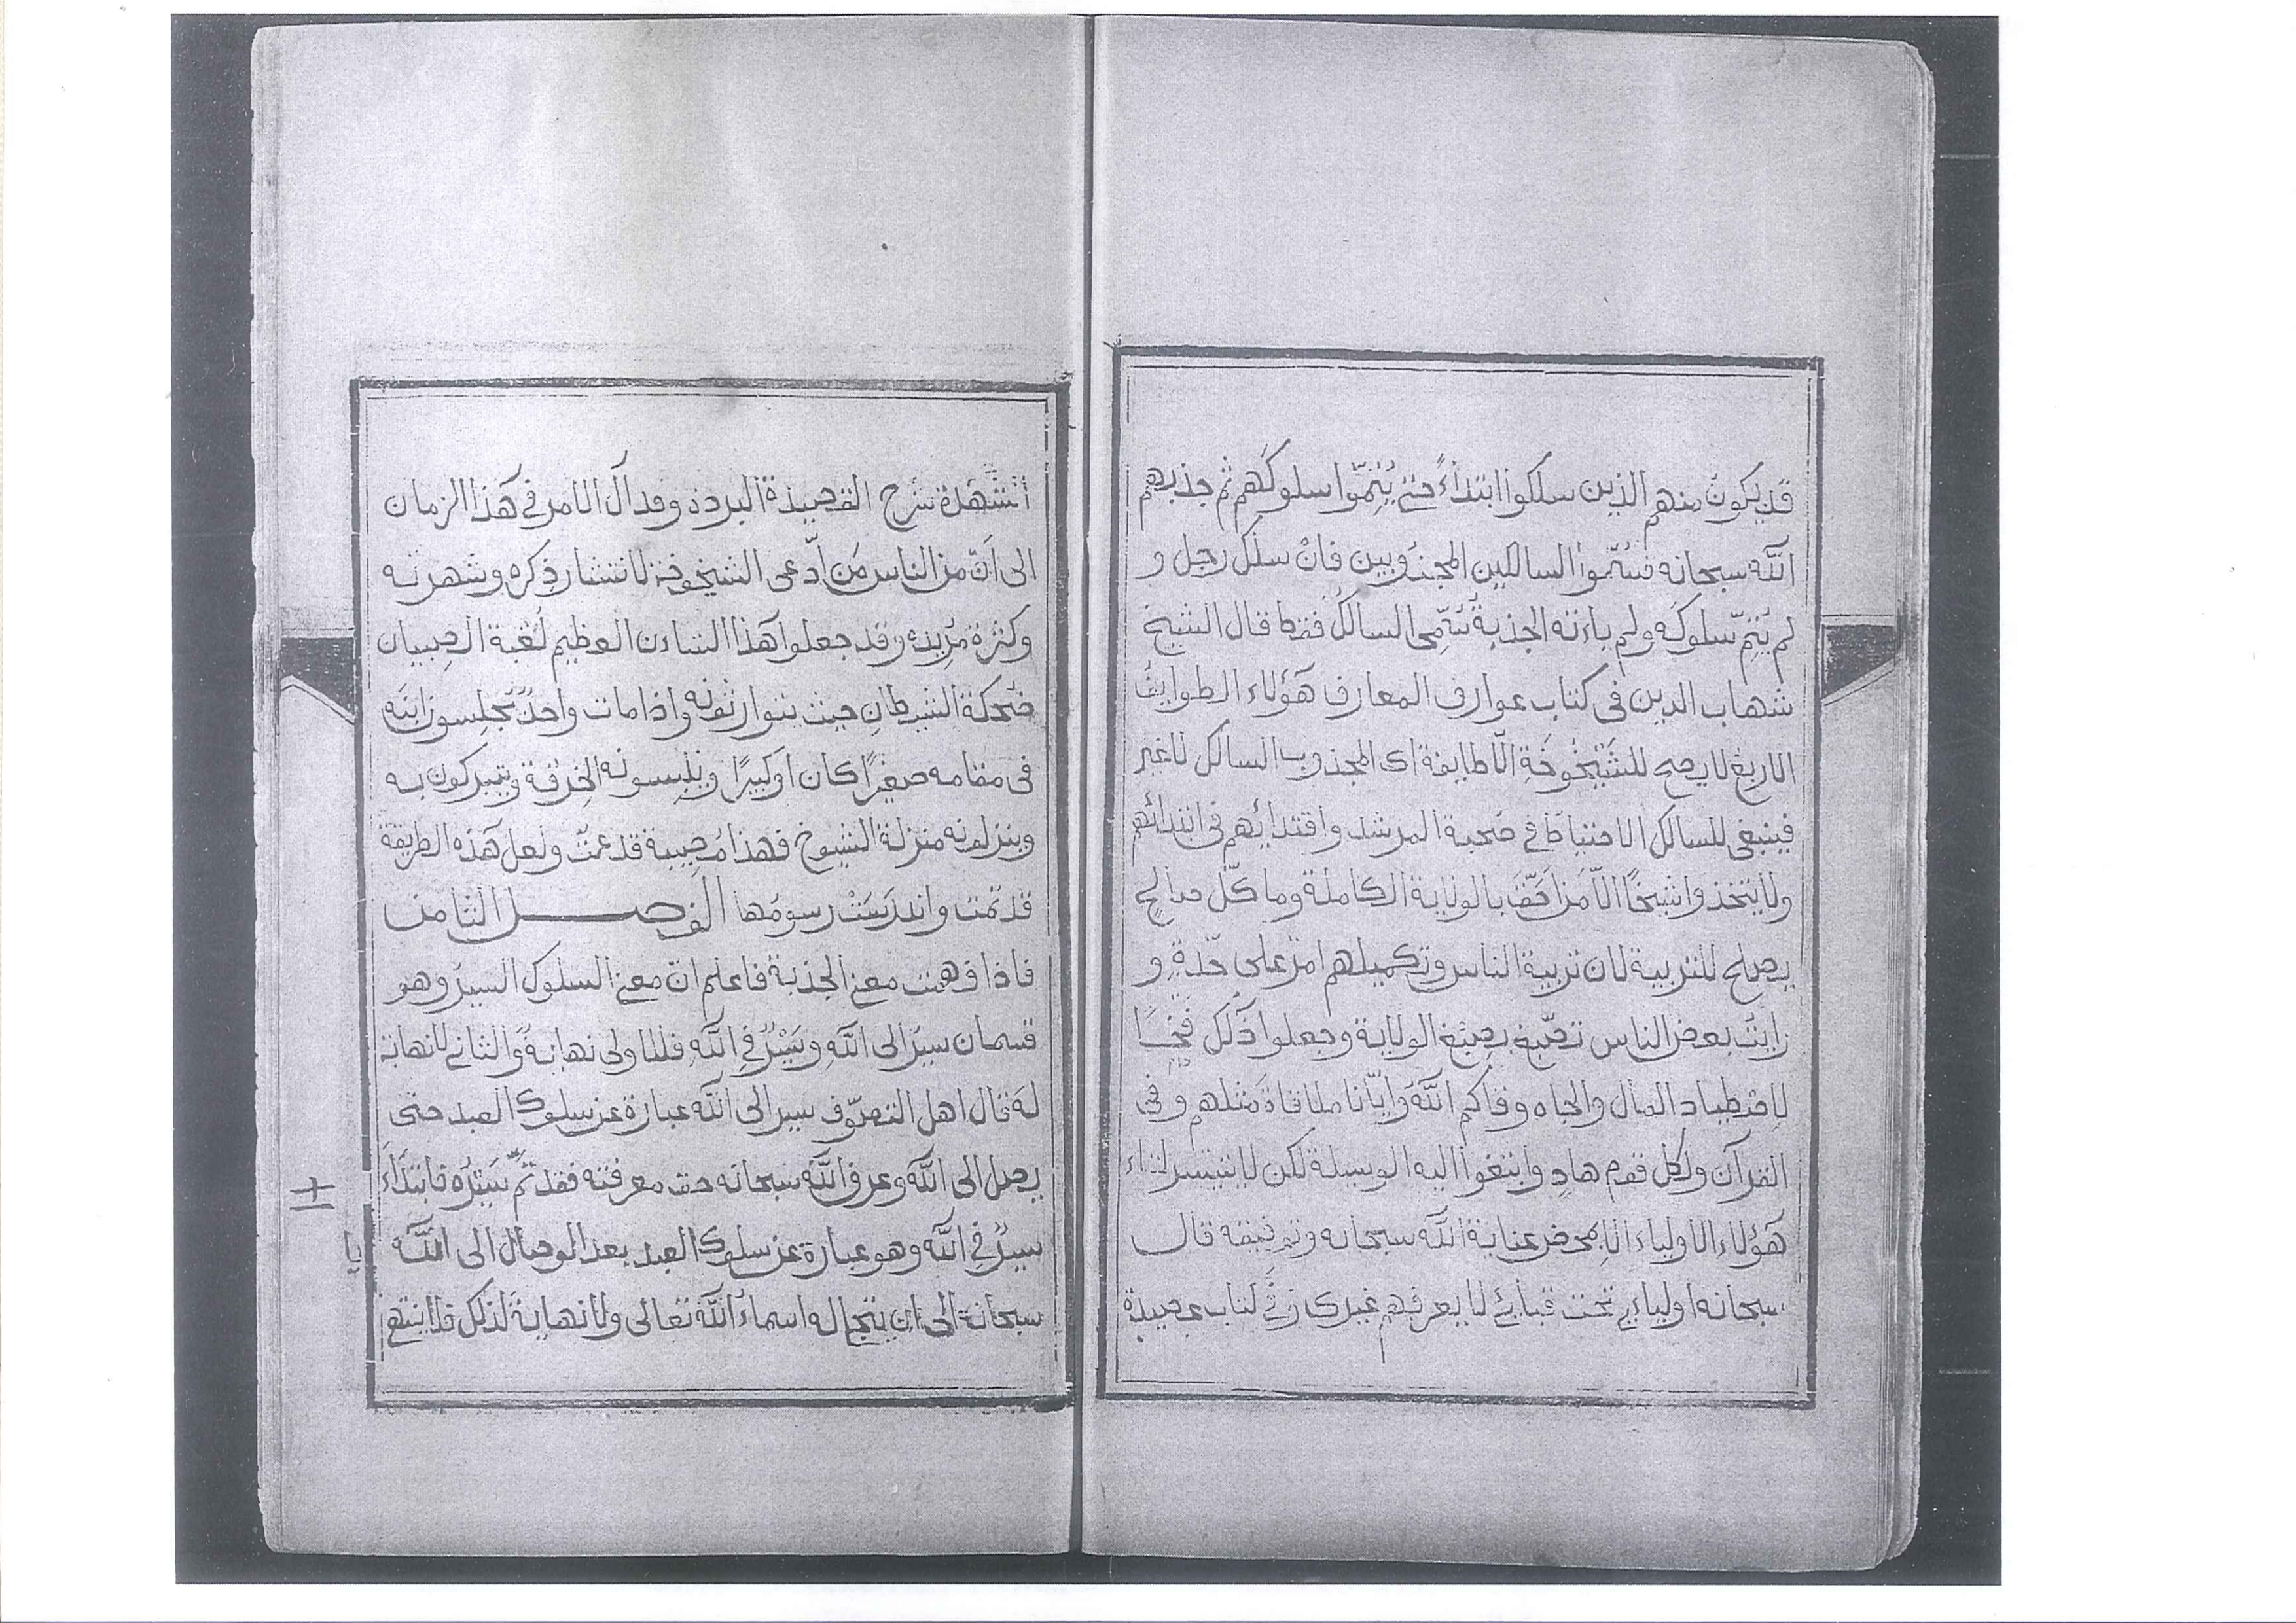 قد يكون منهم الذين سلكوا ابتداءً حتى يُتِمّوا سلوكَهم ثم جذبهم
الله سبحانه فسُمّوا السالكين المجذوبين فان سلك رجل و
لم يُتِمّ سلوكَه ولم يأته الجذبةُ يُسَمّى السالكُ فقط قال الشيخ
شهاب الدين فى كتاب عوارف المعارف هَؤلاء الطوايفُ
الاربعُ لا يصح للشَّيْخُوخَةِ الّا طايفة اى المجذوب السالك لا غير
فينبغى للسالك الاحتياط فى صُحبة المرشد واقتدايُهم فى ابتدائهم
ولا يتخذوا شيخًا الّا مَن بالولاية الكاملة وما كلّ صالحٍ
يصلح للتربية لان تربية الناس وتكميلهم امرٌ على حِدةٍ و
رايت بعض الناس بصِبْغ الولاية وجعلوا ذلك فَخًّا
لاصْطياد المال والجاه وقاكم اللهُ وايّانا ملاقاةَ مثلهم وفى
القرآن ولكل قوم هادٍ وابتغوا اليه الوسيلة لكن لا يتيسر لقاء
هَؤلاء الاولياء الا بمحض عناية الله سبحانه وتوفيقه قال
سبحانه اوليائى تحت قبائى لا يعرفهم غيرى فى كتاب عصيدة
الشُّهْدة شرح القصيدة البردة وقد آل الامر فى هَذا الزمان
الى اَنّ من الناس مَن ادّعى الشيخوخة لانتشار ذِكره وشهرته
وكثرة مُرِيده وقد جعلوا هَذا الشاءن العظيم لُعْبة الصِبيان
ضُحكة الشيطان حيث يتوارثونه واذا مات واحدٌ يُجلِسون ابنَه
فى مقامه صغيرًا كان او كبيرًا ويُلْبِسونه الخِرْقة ويتبركون به
وينزلونه منزلة الشيوخ فهذا مُصِيبة قد عَمَّتْ ولعل هَذه الطريقة
قد تمّت واندرَسَتْ رسومُها الفصل الثامن
فاذا فهمت معنى الجذبة فاعلم ان معنى السلوك السيرُ وهو
قسمان سيرٌ الى الله وسَيْرٌ فى الله فللاولى نهايةٌ والثانى لا نهاية
له قال اهل التصوّف سير الى الله عبارة عن سلوك العبد حتى
يصل الى الله وعرف الله سبحانه حق معرفته فقد تمّ سَيْرُه فابتداءَ
سيرٌ فى الله وهو عبارة عن سلوك العبد بعد الوصال الى الله
سبحانه الى ان يتجلى له اسماءُ الله تعالى ولا نهايةَ لذلك فلا ينتهى